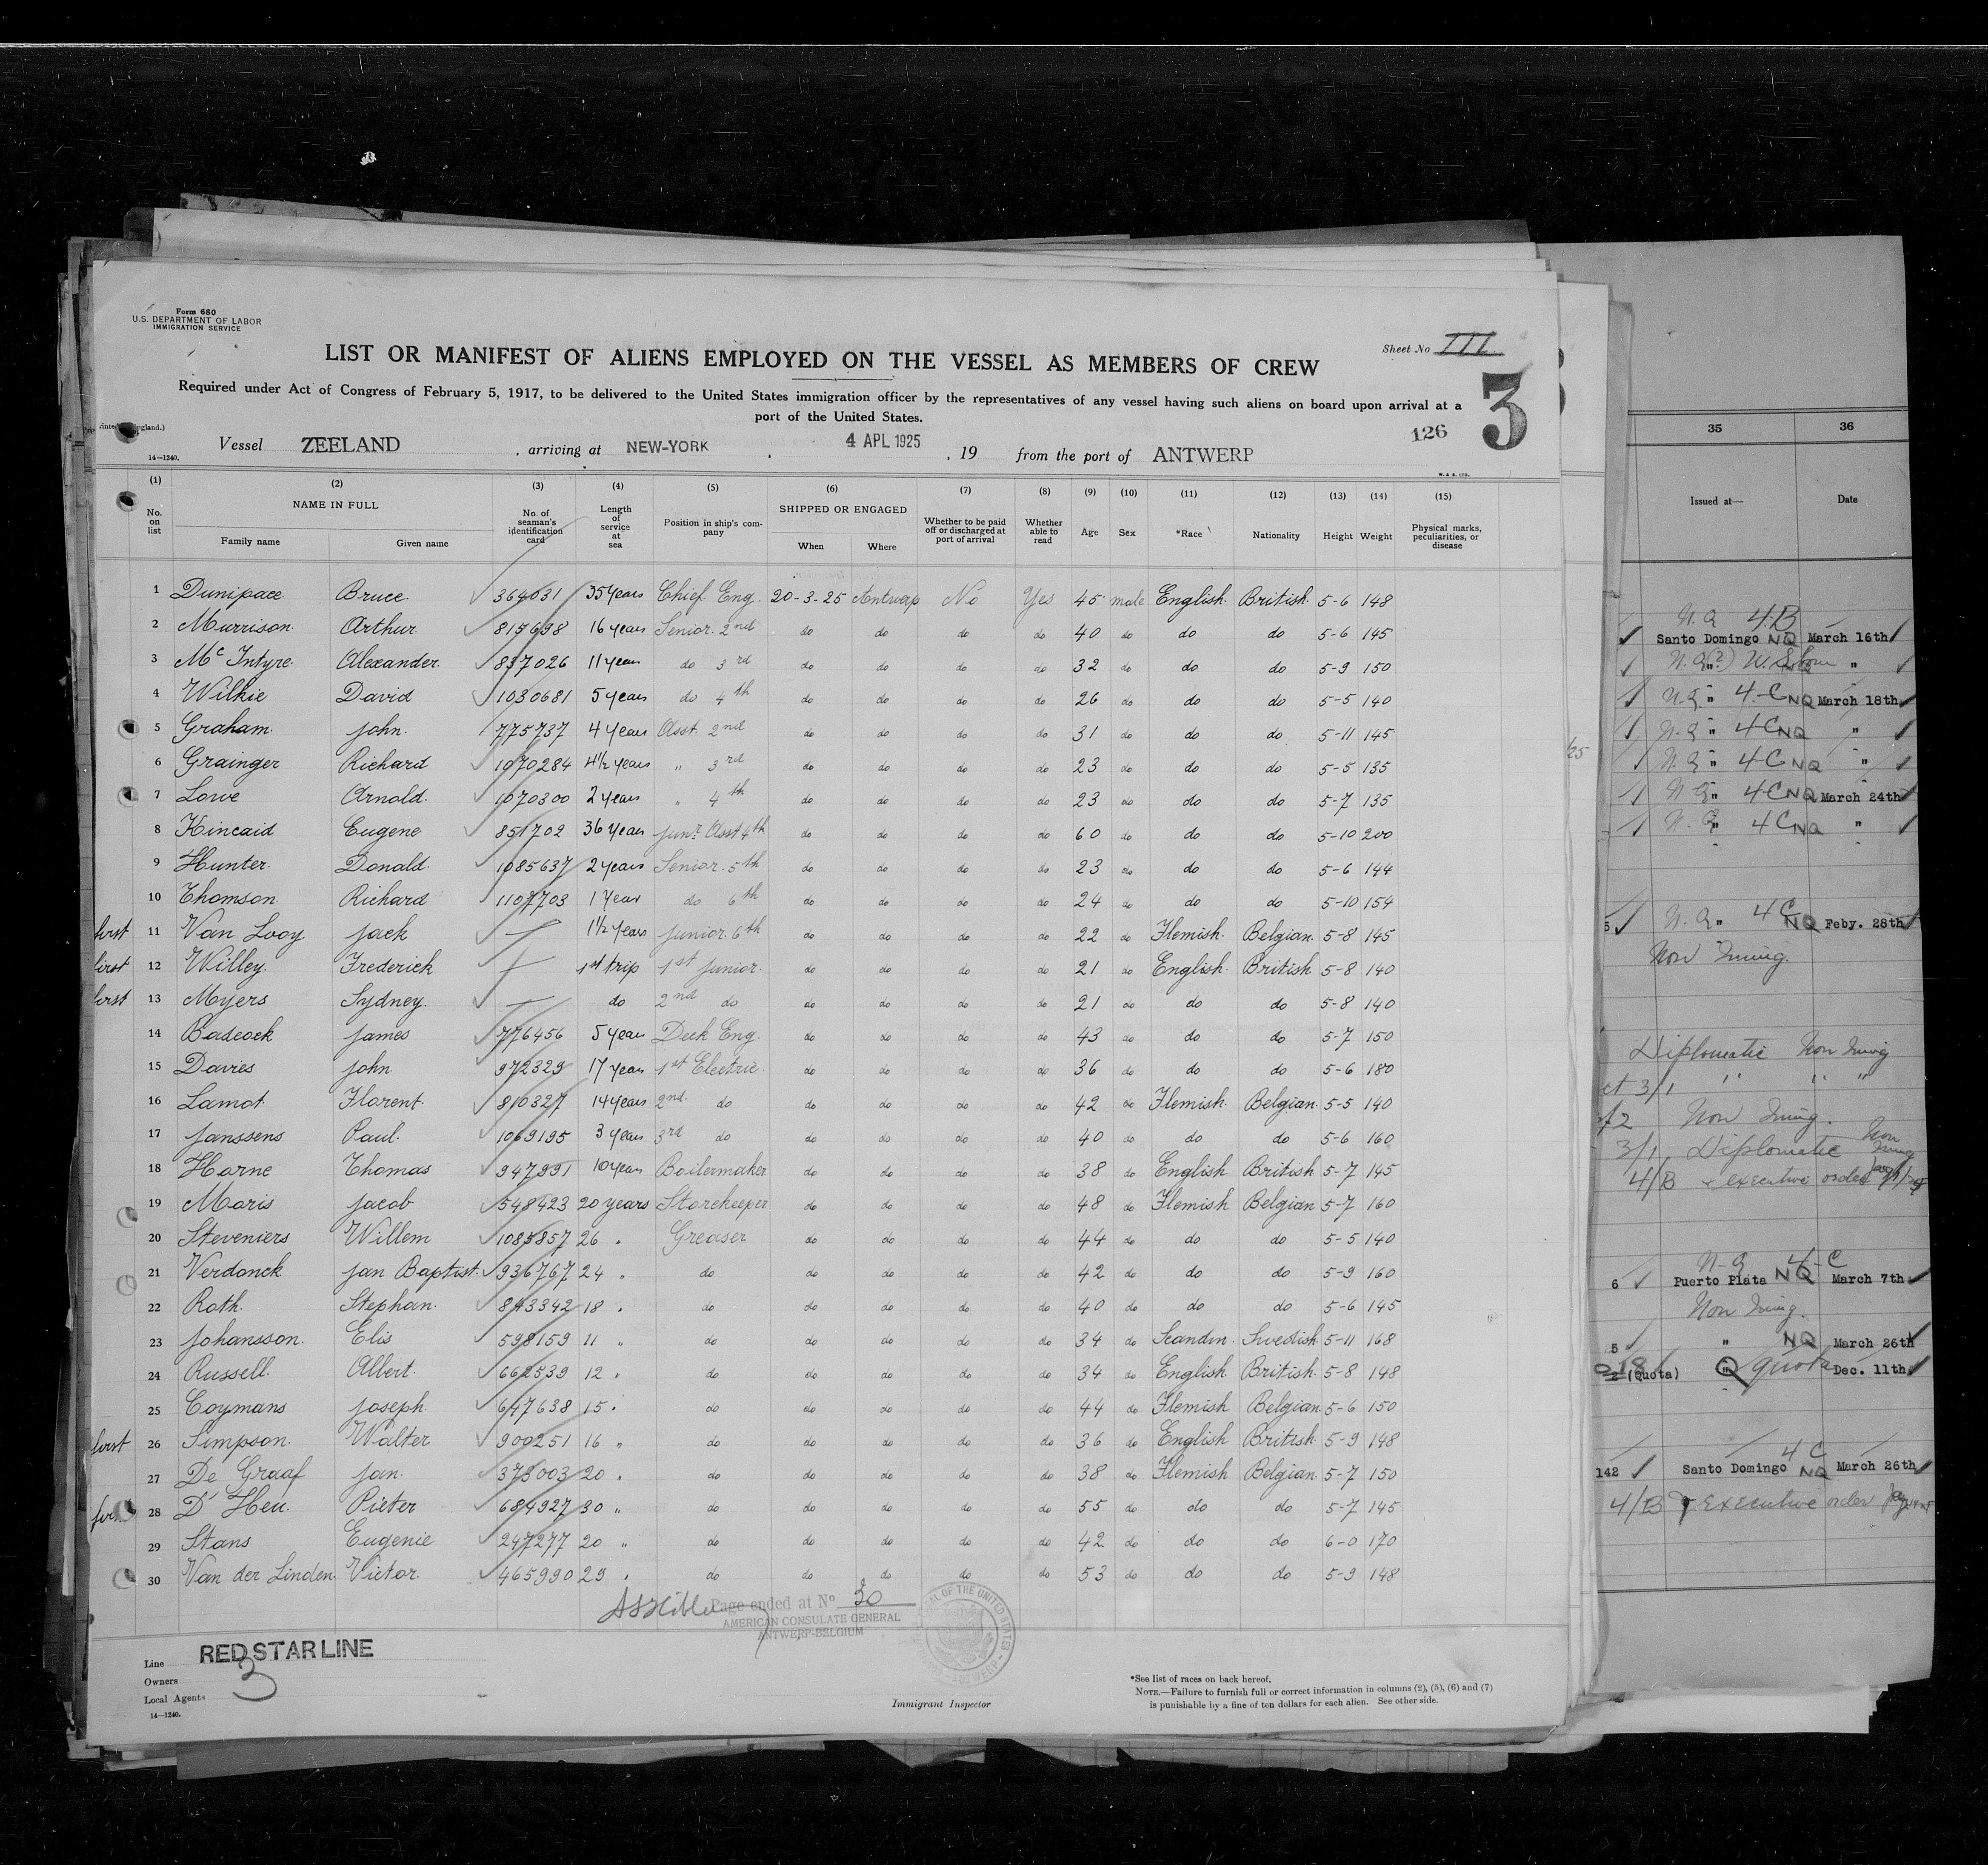 Form 680
U.S. DEPARTMENT OF LABOR
IMMIGRATION SERVICE
Sheet No III
LIST OR MANIFEST OF ALIENS EMPLOYED ON THE VESSEL AS MEMBERS OF CREW
3
Required under Act of Congress of February 5, 1917, to be delivered to the United States immigration officer by the representatives of any vessel having such aliens on board upon arrival at a
port of the United States.
126
Vessel ZEELAND , arriving at NEW-YORK , 4 APL 1925 , 19 from the port of ANTWERP
14—1240.
W. & S. LTD.
(1) (2) (3) (4) (5) (6) (7) (8) (9) (10) (11) (12) (13) (14) (15)
No. on list NAME IN FULL Family name Given name No. of seaman's identification card Length of service at sea Position in ship's company SHIPPED OR ENGAGED When Where Whether to be paid off or discharged at port of arrival Whether able to read Age Sex *Race Nationality Height Weight Physical marks, peculiarities, or disease
1 Dunipace Bruce 364031 35 years Chief Eng. 20-3-25 Antwerp No Yes 45 male English British 5-6 148
2 Murrison Arthur 815698 16 years Senior 2nd do do do do 40 do do do 5-6 145
3 Mc Intyre Alexander 837026 11 years do 3rd do do do do 32 do do do 5-9 150
4 Wilkie David 1030681 5 years do 4th do do do do 26 do do do 5-5 140
5 Graham John 775737 4 years Asst. 2nd do do do do 31 do do do 5-11 145
6 Grainger Richard 1070284 4½ years " 3rd do do do do 23 do do do 5-5 135
7 Lowe Arnold 1070300 2 years " 4th do do do do 23 do do do 5-7 135
8 Kincaid Eugene 851702 36 years Junr. Asst 4th do do do do 60 do do do 5-10 200
9 Hunter Donald 1085637 2 years Senior 5th do do do do 23 do do do 5-6 144
10 Thomson Richard 1107703 1 year do 6th do do do do 24 do do do 5-10 154
first 11 Van Looy Jack — 1½ years Junior 6th do do do do 22 do Flemish Belgian 5-8 145
first 12 Willey Frederick — 1st trip 1st Junior do do do do 21 do English British 5-8 140
first 13 Myers Sydney — do 2nd do do do do do 21 do do do 5-8 140
14 Badcock James 776456 5 years Deck Eng. do do do do 43 do do do 5-7 150
15 Davies John 972329 17 years 1st Electric. do do do do 36 do do do 5-6 180
16 Lamot Florent 810327 14 years 2nd do do do do do 42 do Flemish Belgian 5-5 140
17 Janssens Paul 1069195 3 years 3rd do do do do do 40 do do do 5-6 160
18 Horne Thomas 947991 10 years Boilermaker do do do do 38 do English British 5-7 145
19 Moris Jacob 548423 20 years Storekeeper do do do do 48 do Flemish Belgian 5-7 160
20 Steveniers Willem 1085857 26 " Greaser do do do do 44 do do do 5-5 140
21 Verdonck Jan Baptist 936767 24 " do do do do do 42 do do do 5-9 160
22 Roth Stephan 843342 18 " do do do do do 40 do do do 5-6 145
23 Johansson Elis 598159 11 " do do do do do 34 do Scandin. Swedish 5-11 168
24 Russell Albert 662539 12 " do do do do do 34 do English British 5-8 148
25 Coymans Joseph 647638 15 " do do do do do 44 do Flemish Belgian 5-6 150
first 26 Simpson Walter 900251 16 " do do do do do 36 do English British 5-9 148
27 De Graaf Jan 373003 20 " do do do do do 38 do Flemish Belgian 5-7 150
28 D'Heu Pieter 684927 30 " do do do do do 55 do do do 5-7 145
29 Stans Eugenie 247277 20 " do do do do do 42 do do do 6-0 170
30 Van der Linden Victor 465990 29 " do do do do do 53 do do do 5-9 148
Page ended at No 30
AMERICAN CONSULATE GENERAL
ANTWERP-BELGIUM
Line RED STAR LINE
Owners
Local Agents 3
14—1240.
Immigrant Inspector
*See list of races on back hereof.
NOTE.—Failure to furnish full or correct information in columns (2), (5), (6) and (7)
is punishable by a fine of ten dollars for each alien. See other side.
35 36
Issued at— Date
N.Q 4B
Santo Domingo NQ March 16th
" "
N.Q " 4-C NQ March 18th
N.Q " 4C NQ "
N.Q " 4-C NQ "
N.Q " 4C NQ March 24th
N.Q " 4C NQ "
5 N.Q " 4C NQ Feby. 28th
Non Immig.
Diplomatic Non Immig
3/1 " " "
Non Immig.
3/1 Diplomatic Non Immig
4/B executive order
N-Q 4-C
6 Puerto Plata NQ March 7th
Non Immig.
5 " NQ March 26th
(Quota) Q quota Dec. 11th
4 C
142 Santo Domingo NQ March 26th
4/B Executive order